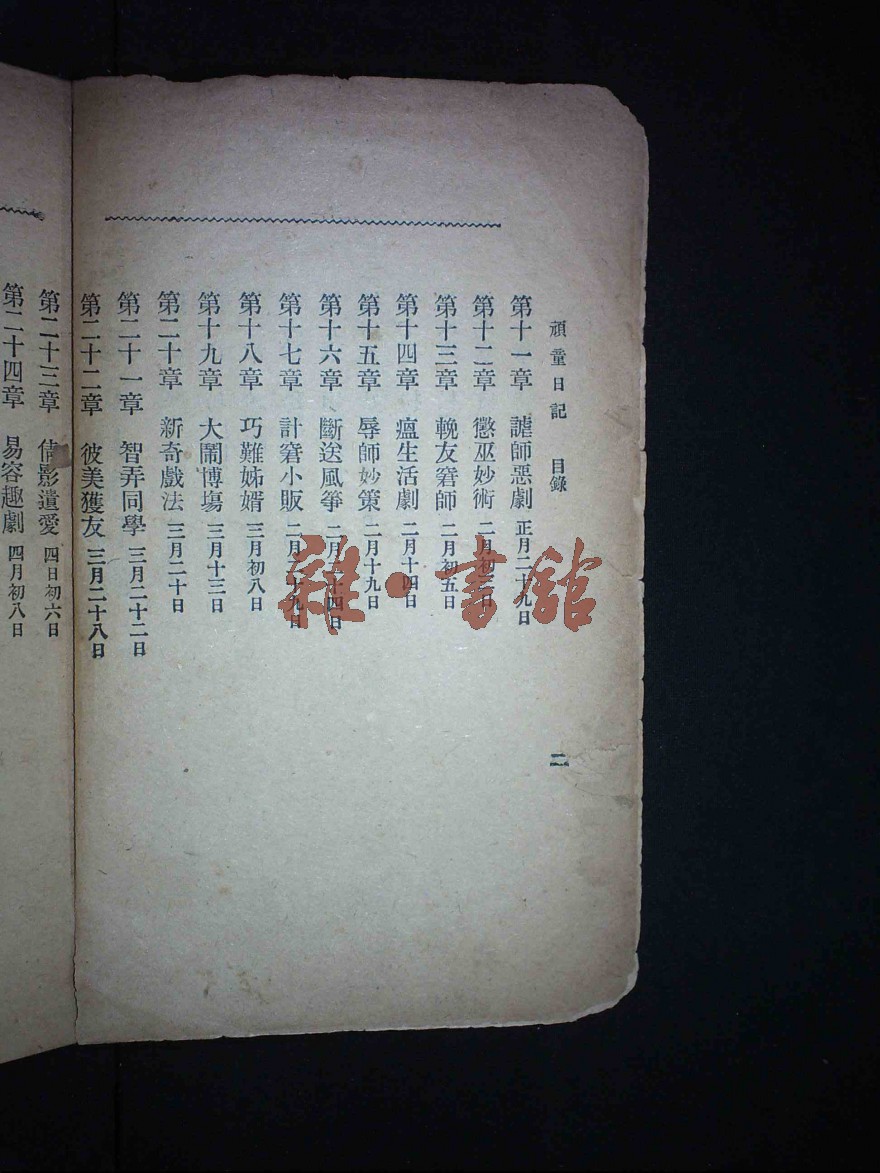 頑童日記 目錄
第十一章 謔師惡劇 正月二十九日
第十二章 懲巫妙術 二月初三日
第十三章 輓友窘師 二月初五日
第十四章 瘟生活劇 二月十四日
第十五章 辱師妙策 二月十九日
第十六章 斷送風箏 二月二十四日
第十七章 計窘小販 二月二十九日
第十八章 巧難姊婿 三月初八日
第十九章 大鬧博塲 三月十三日
第二十章 新奇戲法 三月二十日
第二十一章 智弄同學 三月二十二日
第二十二章 彼美獲友 三月二十八日
第二十三章 倩影遺愛 四日初六日
第二十四章 易容趣劇 四月初八日
二
雜·書館